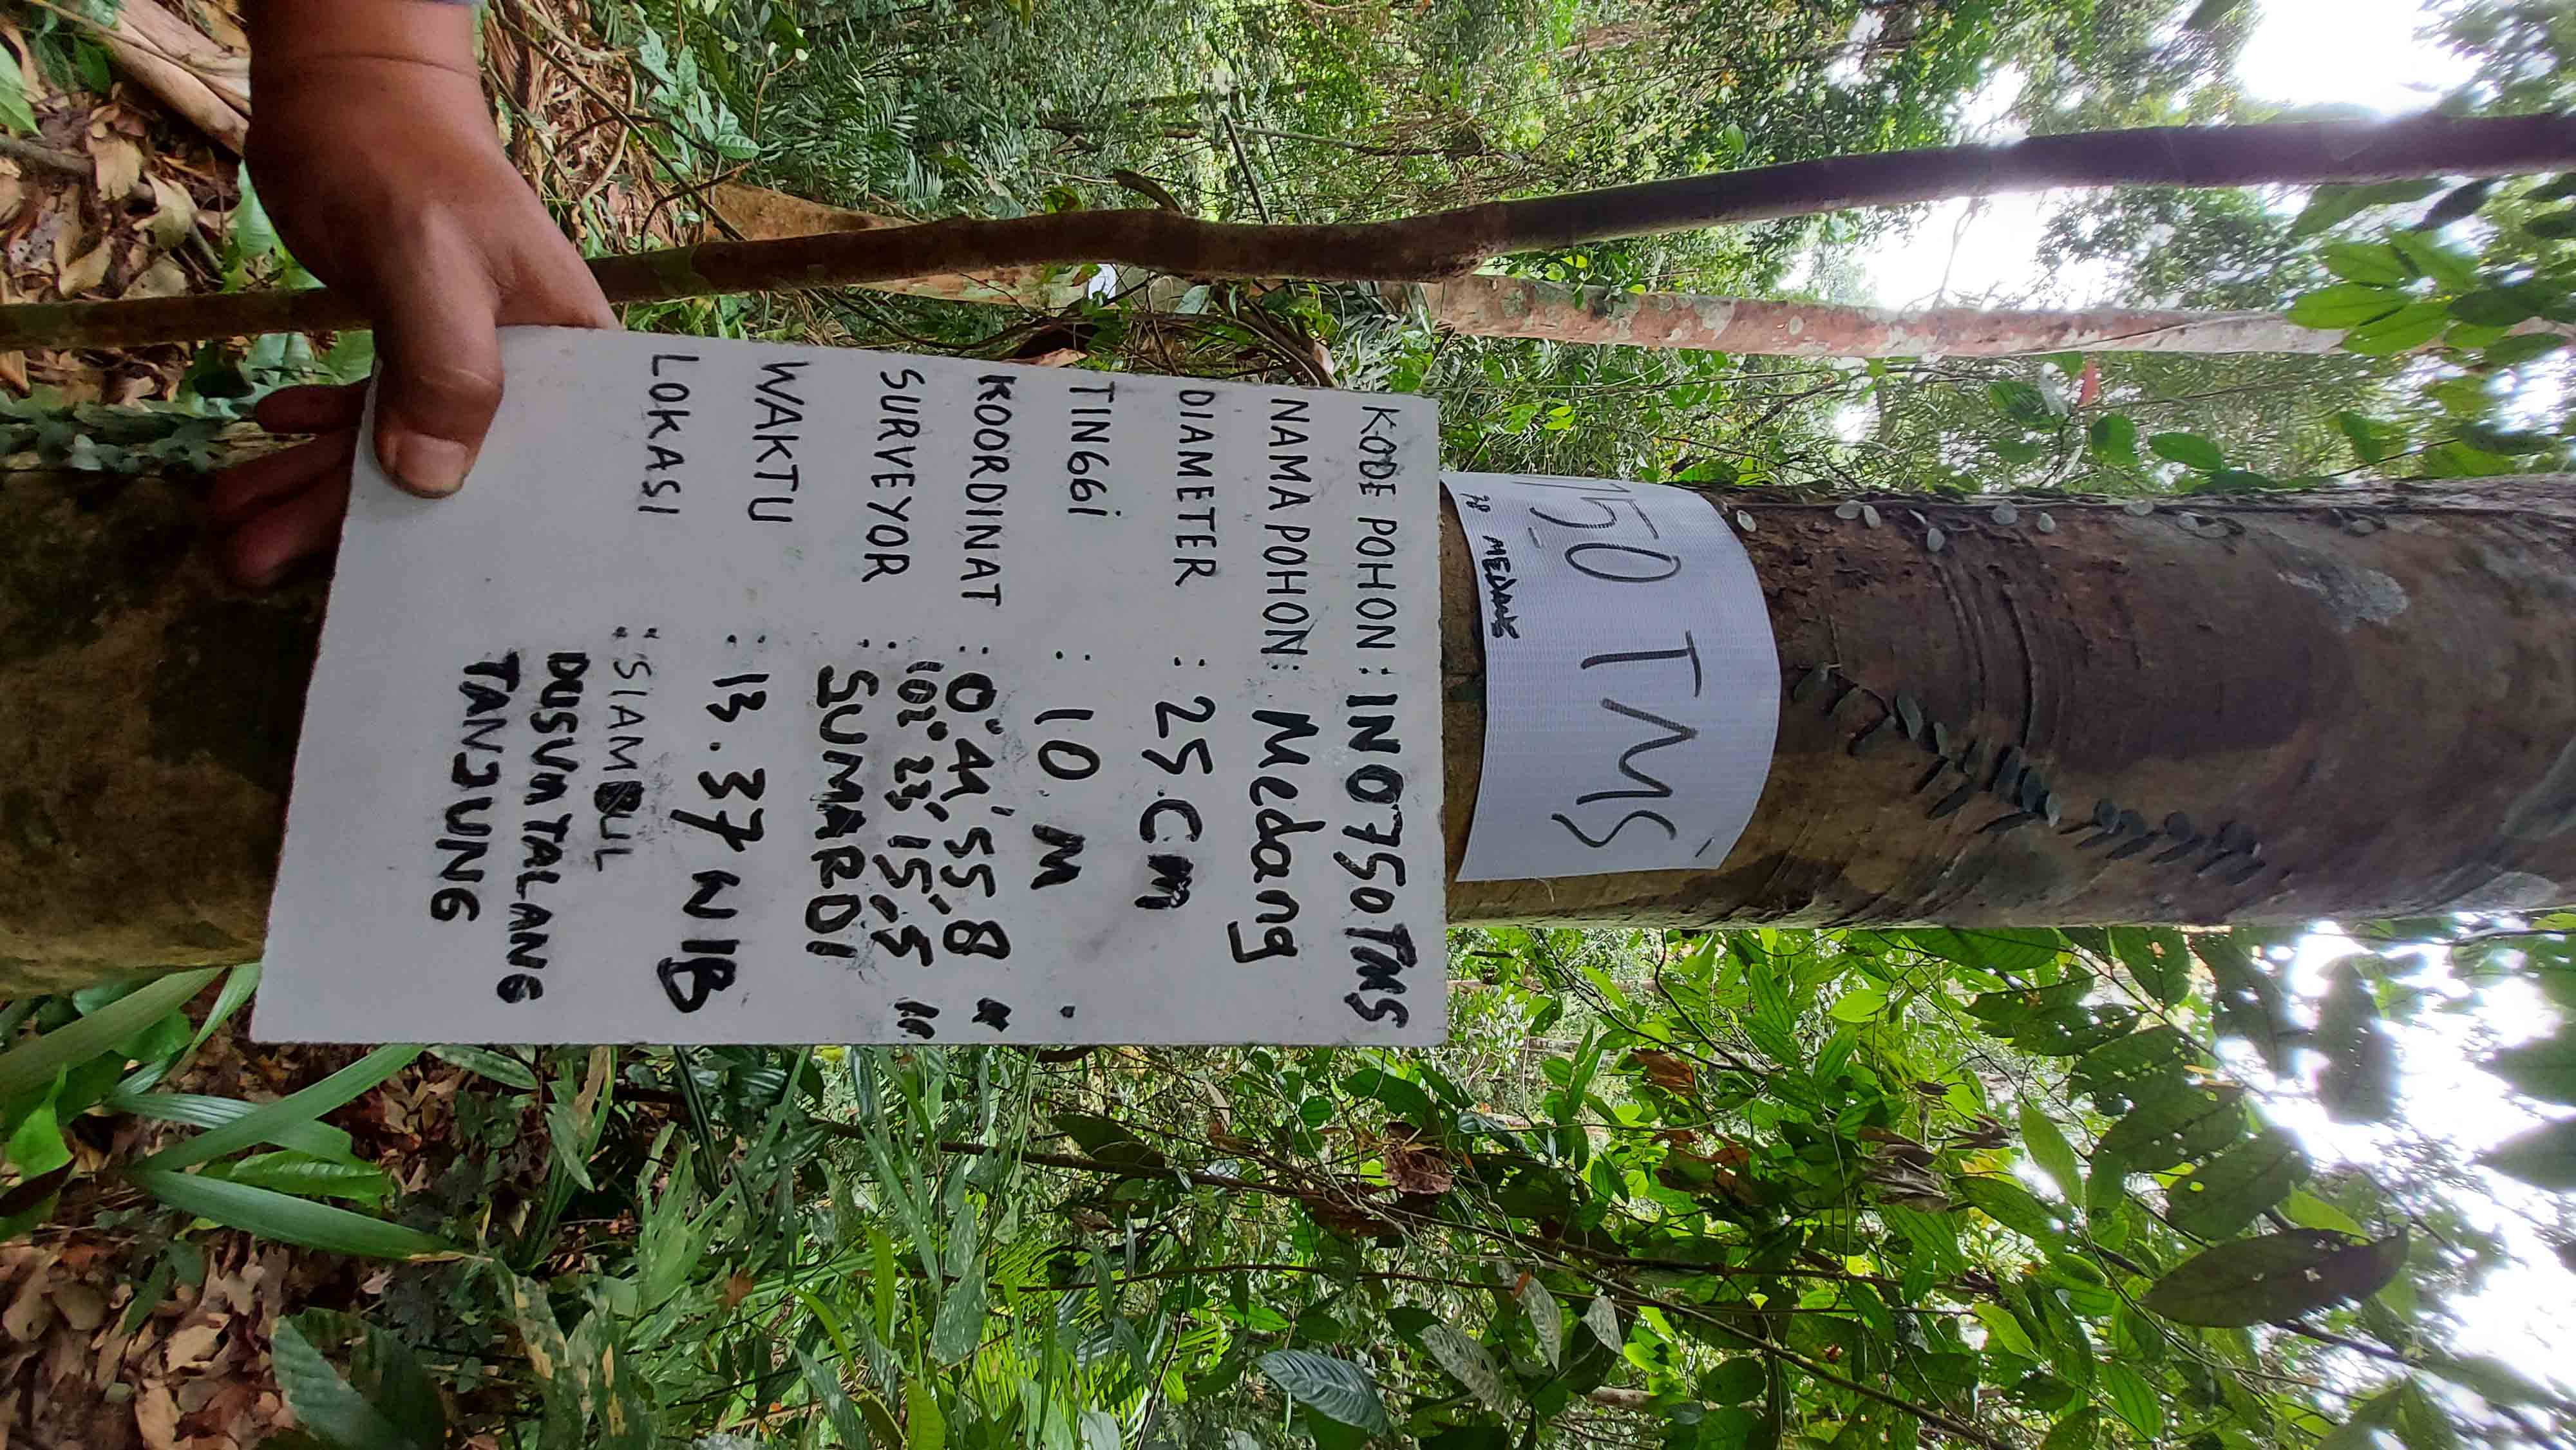 KODE POHON : IN 0750 TMS
NAMA POHON : Medang
DIAMETER : 25 Cm
TINGGI : 10 M
KOORDINAT : 0° 44' 55.8 "
102° 23' 15.5 "
SURVEYOR : SUMARDI
WAKTU : 13.37 WIB
LOKASI : SIAMBUL
DUSUN TALANG
TANJUNG
750 TMS
MEDANG